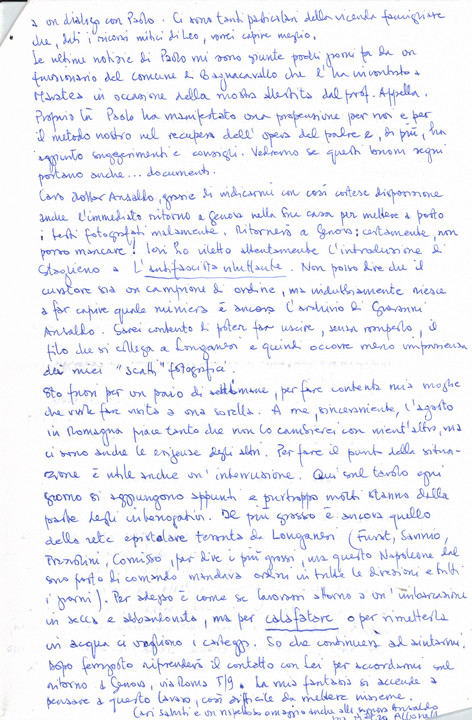 a un dialogo con Paolo. Ci sono tanti particolari della vicenda famigliare
che, dati i ricordi mitici di Leo, vorrei capire meglio.
Le ultime notizie di Paolo mi sono giunte pochi giorni fa da un
funzionario del comune di Bagnacavallo che l'ha incontrato a
Maratea in occasione della mostra allestita dal prof. Appella.
Proprio lì Paolo ha manifestato una propensione per noi e per
il metodo nostro nel recupero dell'opera del padre e, di più, ha
aggiunto suggerimenti e consigli. Vedremo se questi buoni segni
portano anche... documenti.
Caro dottor Ansaldo, grazie di indicarmi con così cortese disposizione
anche l'immediato ritorno a Genova nella Sua casa per mettere a posto
i testi fotografati malamente. Ritornerò a Genova: certamente, non
posso mancare! Ieri ho riletto attentamente l'introduzione di
Staglieno a L'antifascista riluttante. Non posso dire che il
curatore sia un campione di ordine, ma indubbiamente riesce
a far capire quale miniera è ancora l'archivio di Giovanni
Ansaldo. Sarei contento di poter far uscire, senza romperlo, il
filo che si collega a Longanesi e quindi occorre meno imprudenza
dei miei "scatti" fotografici.
Sto fuori per un paio di settimane, per fare contenta mia moglie
che vuole far visita a una sorella. A me, sinceramente, l'agosto
in Romagna piace tanto che non lo cambierei con nient'altro, ma
ci sono anche le esigenze degli altri. Per fare il punto della situa-
zione è utile anche un'interruzione. Qui sul tavolo ogni
giorno si aggiungono appunti e purtroppo molti stanno dalla
parte degli interrogativi. Il più grosso è ancora quello
della rete epistolare tenuta da Longanesi (Furst, Sannio,
Prezzolini, Comisso, per dire i più grossi, ma questo Napoleone dal
suo posto di comando mandava ordini in tutte le direzioni e tutti
i giorni). Per adesso è come se lavorassi attorno a un'imbarcazione
in secca e abbandonata, ma per calafatare o per rimetterla
in acqua ci vogliono i carteggi. So che continuerà ad aiutarmi.
Dopo ferragosto riprenderò il contatto con Lei per accordarmi sul
ritorno a Genova, via Roma 5/9. La mia fantasia si accende a
pensare a questo lavoro, così difficile da mettere insieme.
Cari saluti e un rispettoso omaggio anche alla signora Ansaldo